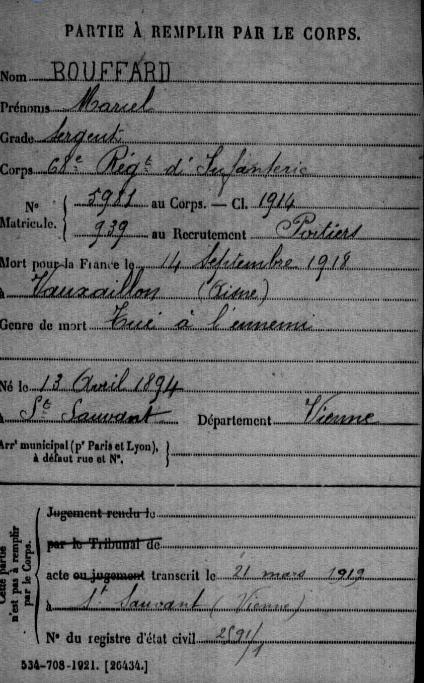 PARTIE À REMPLIR PAR LE CORPS.
Nom BOUFFARD
Prénoms Marcel
Grade Sergent
Corps 68e Régt d'Infanterie
No 5981 au Corps. — Cl. 1914
Matricule. 939 au Recrutement Poitiers
Mort pour la France le 14 Septembre 1918
à Vauxaillon (Aisne)
Genre de mort Tué à l'ennemi
Né le 13 Avril 1894
à St Sauvant Département Vienne
Arrt municipal (pr Paris et Lyon),
à défaut rue et No.
Cette partie
n'est pas à remplir
par le Corps.
Jugement rendu le
par le Tribunal de
acte ou jugement transcrit le 21 mars 1919
à St Sauvant (Vienne)
No du registre d'état civil 2591/1
534-708-1921. [26434.]